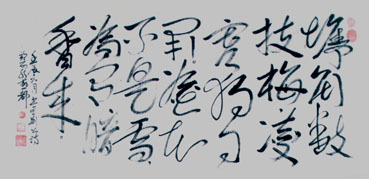 墙角数
枝梅凌
寒独自
开遥知
不是雪
为有暗
香来